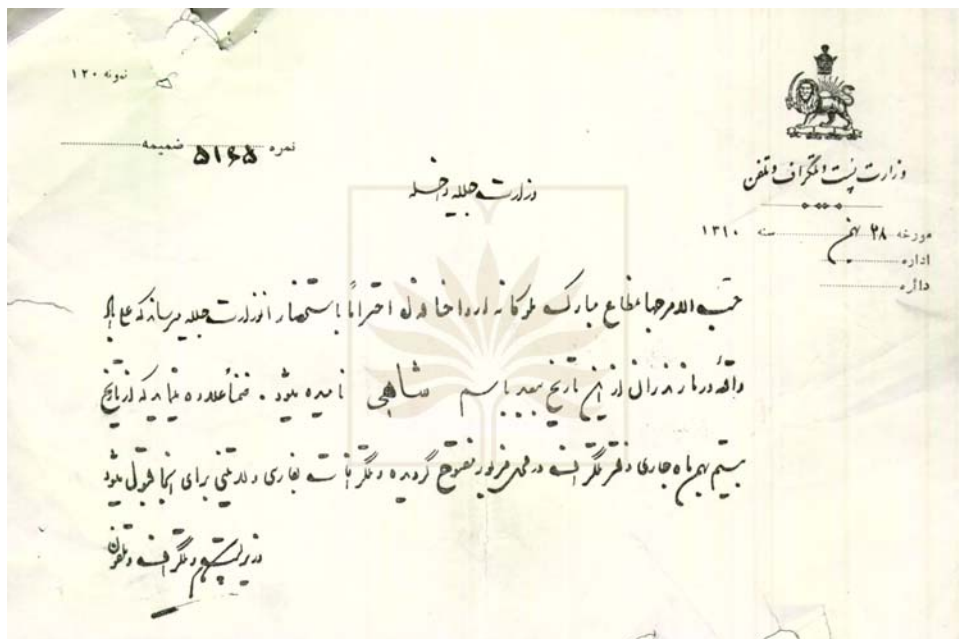 نمونه ۱۲۰
نمره ۵۱۶۵ ضمیمه
وزارت پست و تلگراف و تلفن
مورخه ۲۸ بهمن سنه ۱۳۱۰
اداره
دائره
وزارت جلیله داخله
حسب الامر جهانمطاع مبارک ملوکانه ارواحنا فداه احتراماً باستحضار آنوزارت جلیله میرساند که علی آباد
واقعه در مازندران از این تاریخ ببعد باسم شاهی نامیده میشود . ضمناً علاوه مینماید که از تاریخ
بیستم بهمن ماه جاری دفتر تلگرافی در محل مزبور مفتوح گردیده و تلگرافات بفارسی و لاتینی برای آنجا قبول میشود
وزیر پست و تلگراف و تلفن